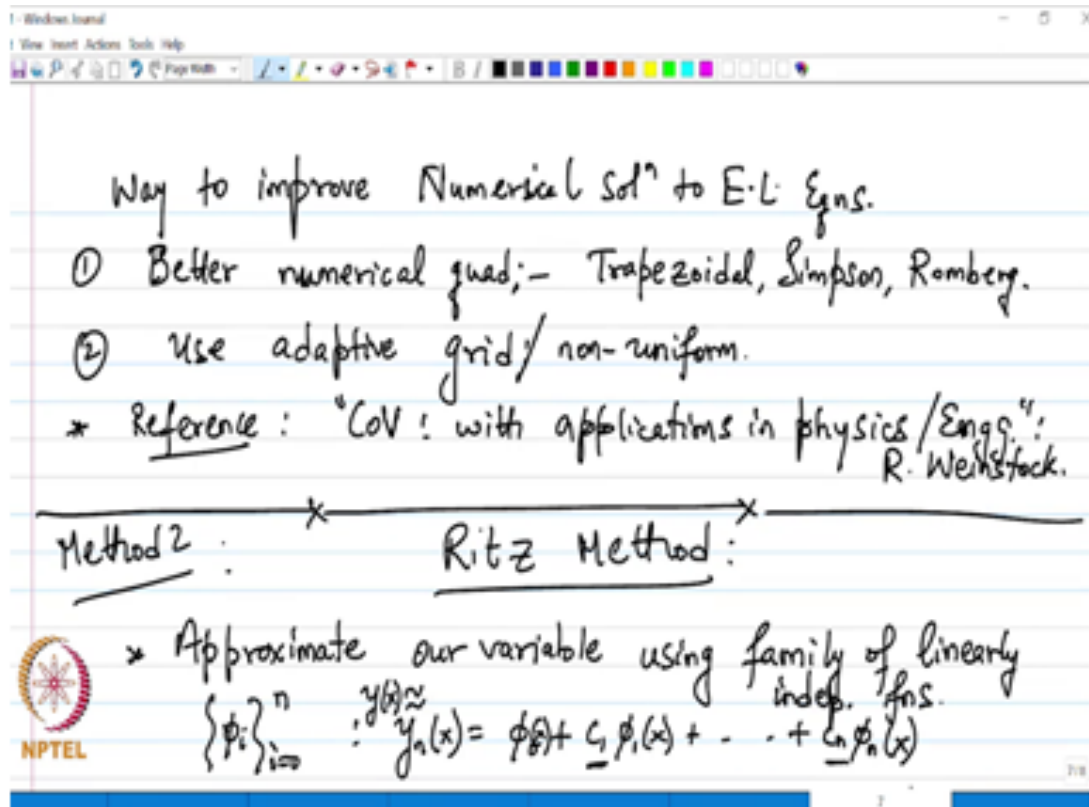 - Windows Journal
View Insert Actions Tools Help
Page Width
B I
Way to improve Numerical Solⁿ to E.L. Eqns.
① Better numerical quad;- Trapezoidal, Simpson, Romberg.
② Use adaptive grid/ non-uniform.
* Reference : "CoV : with applications in physics/Engg." :
R. Weinstock.
Method 2 : Ritz Method :
* Approximate our variable using family of linearly
indep. fns.
{ϕᵢ}ⁿᵢ₌₀ : y(x)≈ yₙ(x) = ϕ₀ + c₁ ϕ₁(x) + - . . + cₙ ϕₙ(x)
NPTEL
7/8
7